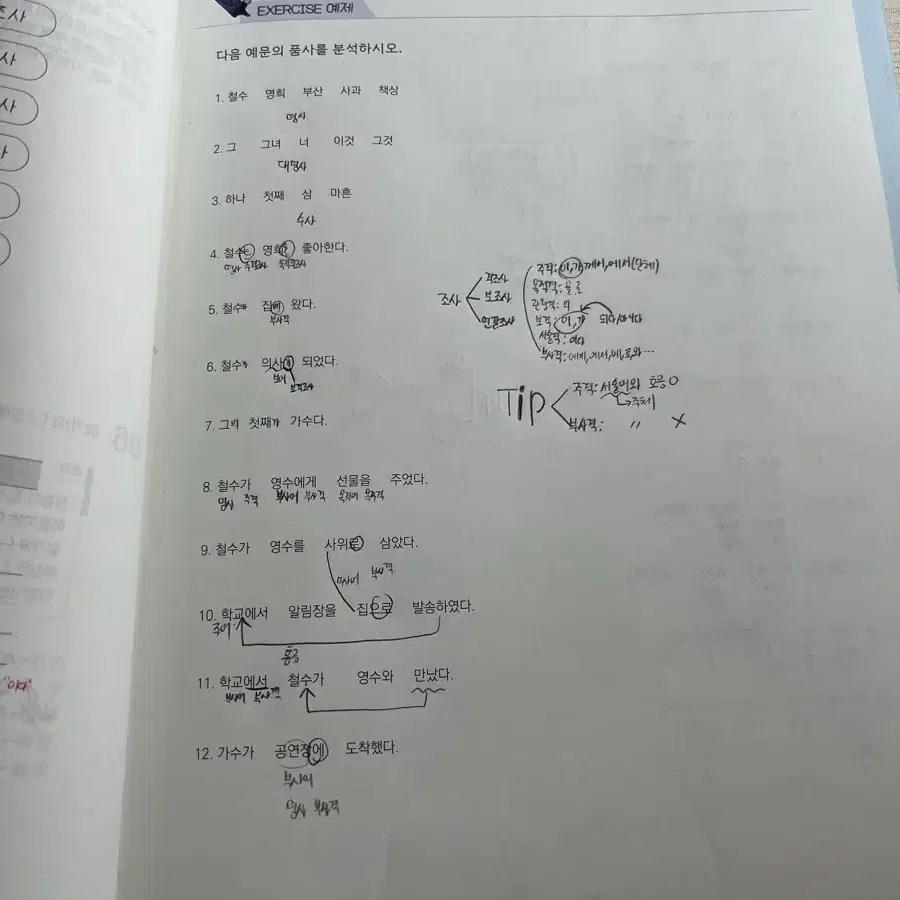 조사
사
사
EXERCISE 예제
다음 예문의 품사를 분석하시오.
1. 철수 영희 부산 사과 책상
명사
2. 그 그녀 너 이것 그것
대명사
3. 하나 첫째 삼 마흔
수사
4. 철수는 영희를 좋아한다.
명사 주격조사 목적격조사
5. 철수가 집에 왔다.
부사격
6. 철수가 의사가 되었다.
보어
보격조사
7. 그의 첫째가 가수다.
8. 철수가 영수에게 선물을 주었다.
명사 주격 부사어 부사격 목적어 목적격
9. 철수가 영수를 사위로 삼았다.
부사어 부사격
10. 학교에서 알림장을 집으로 발송하였다.
주어
호응
11. 학교에서 철수가 영수와 만났다.
부사어 부사격
12. 가수가 공연장에 도착했다.
부사어
명사 부사격
조사
격조사
보조사
연결조사
주격: 이, 가, 께서, 에서(단체)
목적격: 을 를
관형격: 의
보격: 이, 가 되다/아니다
서술격: 이다
부사격: 에게, 에서, 에, 로, 와…
Tip
주격: 서술어와 호응 O
주체
부사격: 〃 X
"이다"